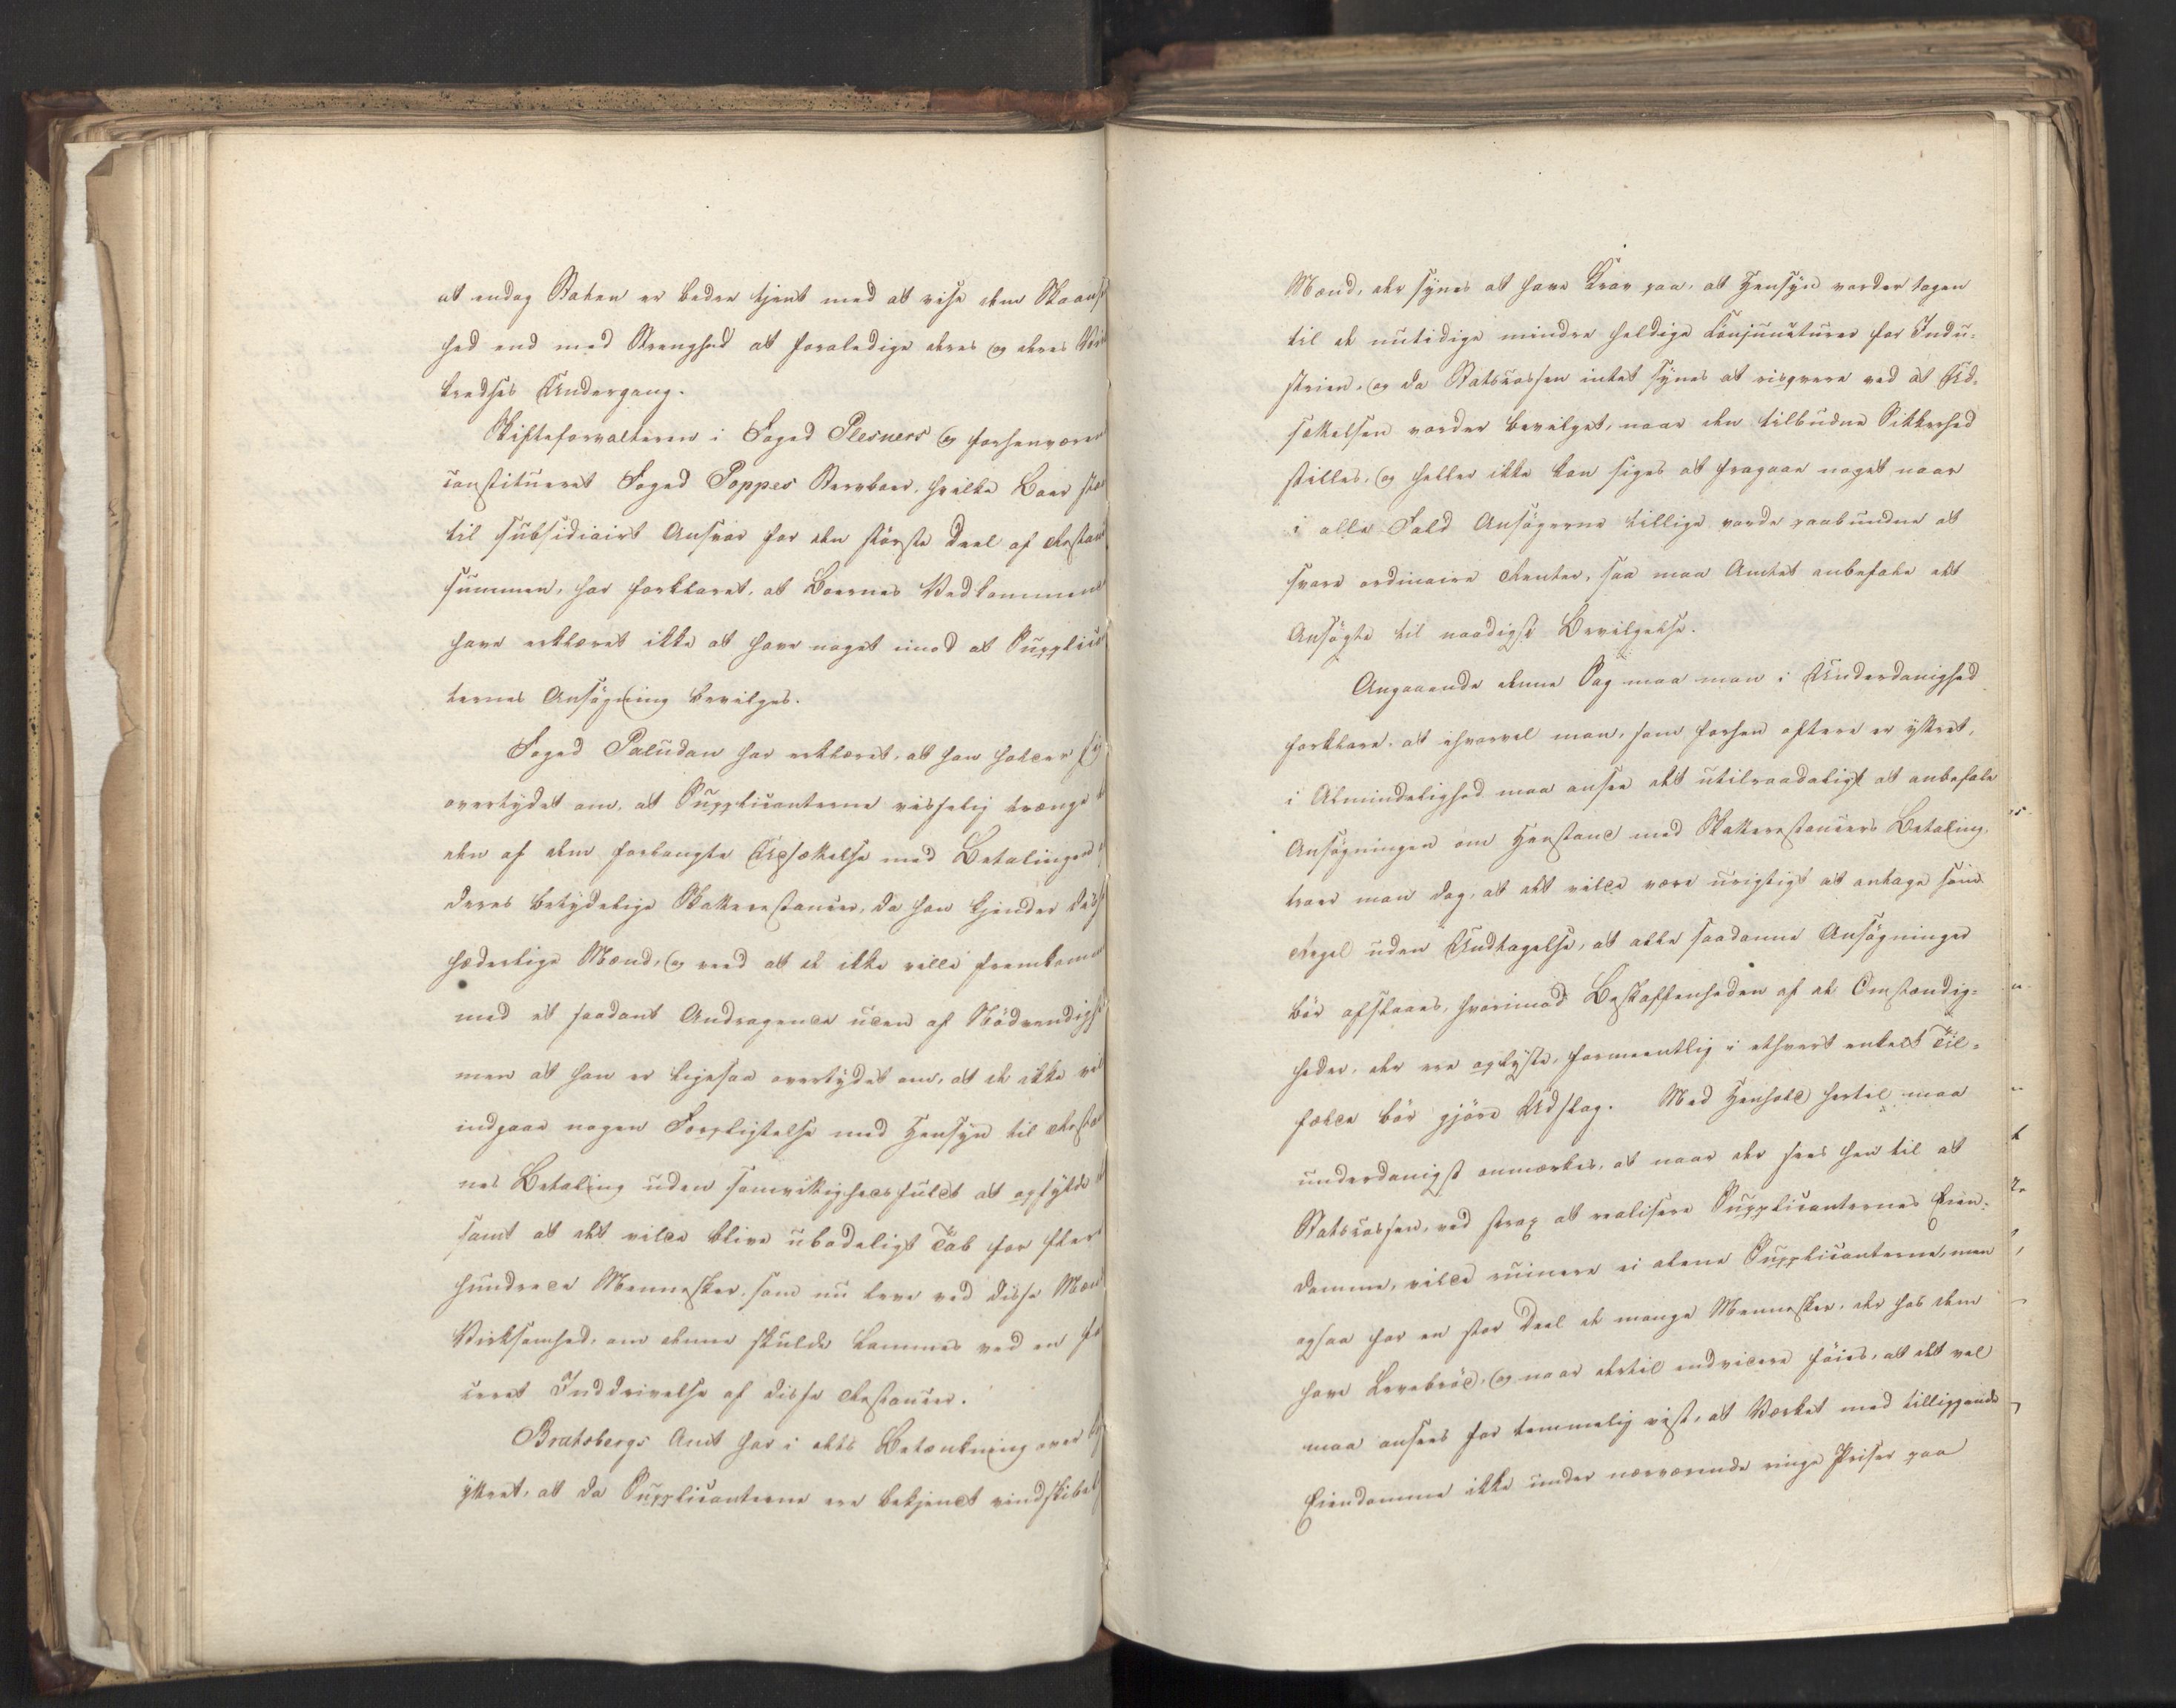 at endog Staten er bedre tjent med at vise dem Skaans
hed end med Strenghed at foraledige deres og deres Virk
kredses Undergang.
Skifteforvalteren i Foged Plesners og forhenværen
constitueret Foged Poppes Stervboer, hvilke Boer staae
til subsidiairt Ansvar for den største Deel af Restance
summen, har forklaret, at Boernes Vedkommende
have erklæret ikke at have noget imod at Supplican
ternes Ansøgning bevilges.
Foged Paludan har erklæret, at han holder sig
overtydet om, at Supplicanterne visselig trænge til
den af dem forlangte Udsættelse med Betalingen af
deres betydelige Skatterestancer, da han kjender disse
hæderlige Mænd, og veed at de ikke ville fremkomme
med et saadant Andragende uden af Nødvendighed
men at han er ligesaa overtydet om, at de ikke vil
indgaae nogen Forpligtelse med Hensyn til Restancer
nes Betaling uden samvittighedsfuldt at opfylde
samt at det vilde blive ubodeligt Tab for fler
hundrede Mennesker, som nu leve ved disse Mænds
Virksomhed, om denne skulde lammes ved en for
ceret Inddrivelse af disse Restancer.
Bratsbergs Amt har i dets Betænkning over
yttret, at da Supplicanterne ere bekjendt vindskibelige
Mænd, der synes at have Krav paa, at Hensyn vorder tagen
til de nutidige mindre heldige Conjuncturer for Indu-
strien, og da Statscassen intet synes at risqvere ved at Ud-
sættelsen vorder bevilget, naar den tilbudne Sikkerhed
stilles, og heller ikke kan siges at fragaae noget naar
i alle Fald Ansøgerne tillige vorde paabundne at
svare ordinaire Renter, saa maa Amtet anbefale det
Ansøgte til naadigst Bevilgelse.
Angaaende denne Sag maa man i Underdanighed
forklare, at ihvorvel man, som forhen oftere er yttret,
i Almindelighed maa ansee det utilraadeligt at anbefale
Ansøgningen om Henstand med Skatterestancers Betaling,
troer man dog, at det vilde være urigtigt at antage som
Regel uden Undtagelse, at alle saadanne Ansøgninger
bør afslaaes, hvorimod Beskaffenheden af de Omstændig-
heder, der ere oplyste, formeentlig i ethvert enkelt Til-
fælde bør gjøre Udslag. Med Henhold hertil maa
underdanigst anmærkes, at naar der sees hen til at
Statscassen, ved strax at realisere Supplicanternes Eien-
domme, vilde ruinere ei alene Supplicanterne, men
ogsaa for en stor Deel de mange Mennesker, der hos dem
have Levebrød, og naar dertil endvidere føies, at det vel
maa ansees for temmelig vist, at Værket med tilliggende
Eiendomme ikke under nærværende ringe Priser paa